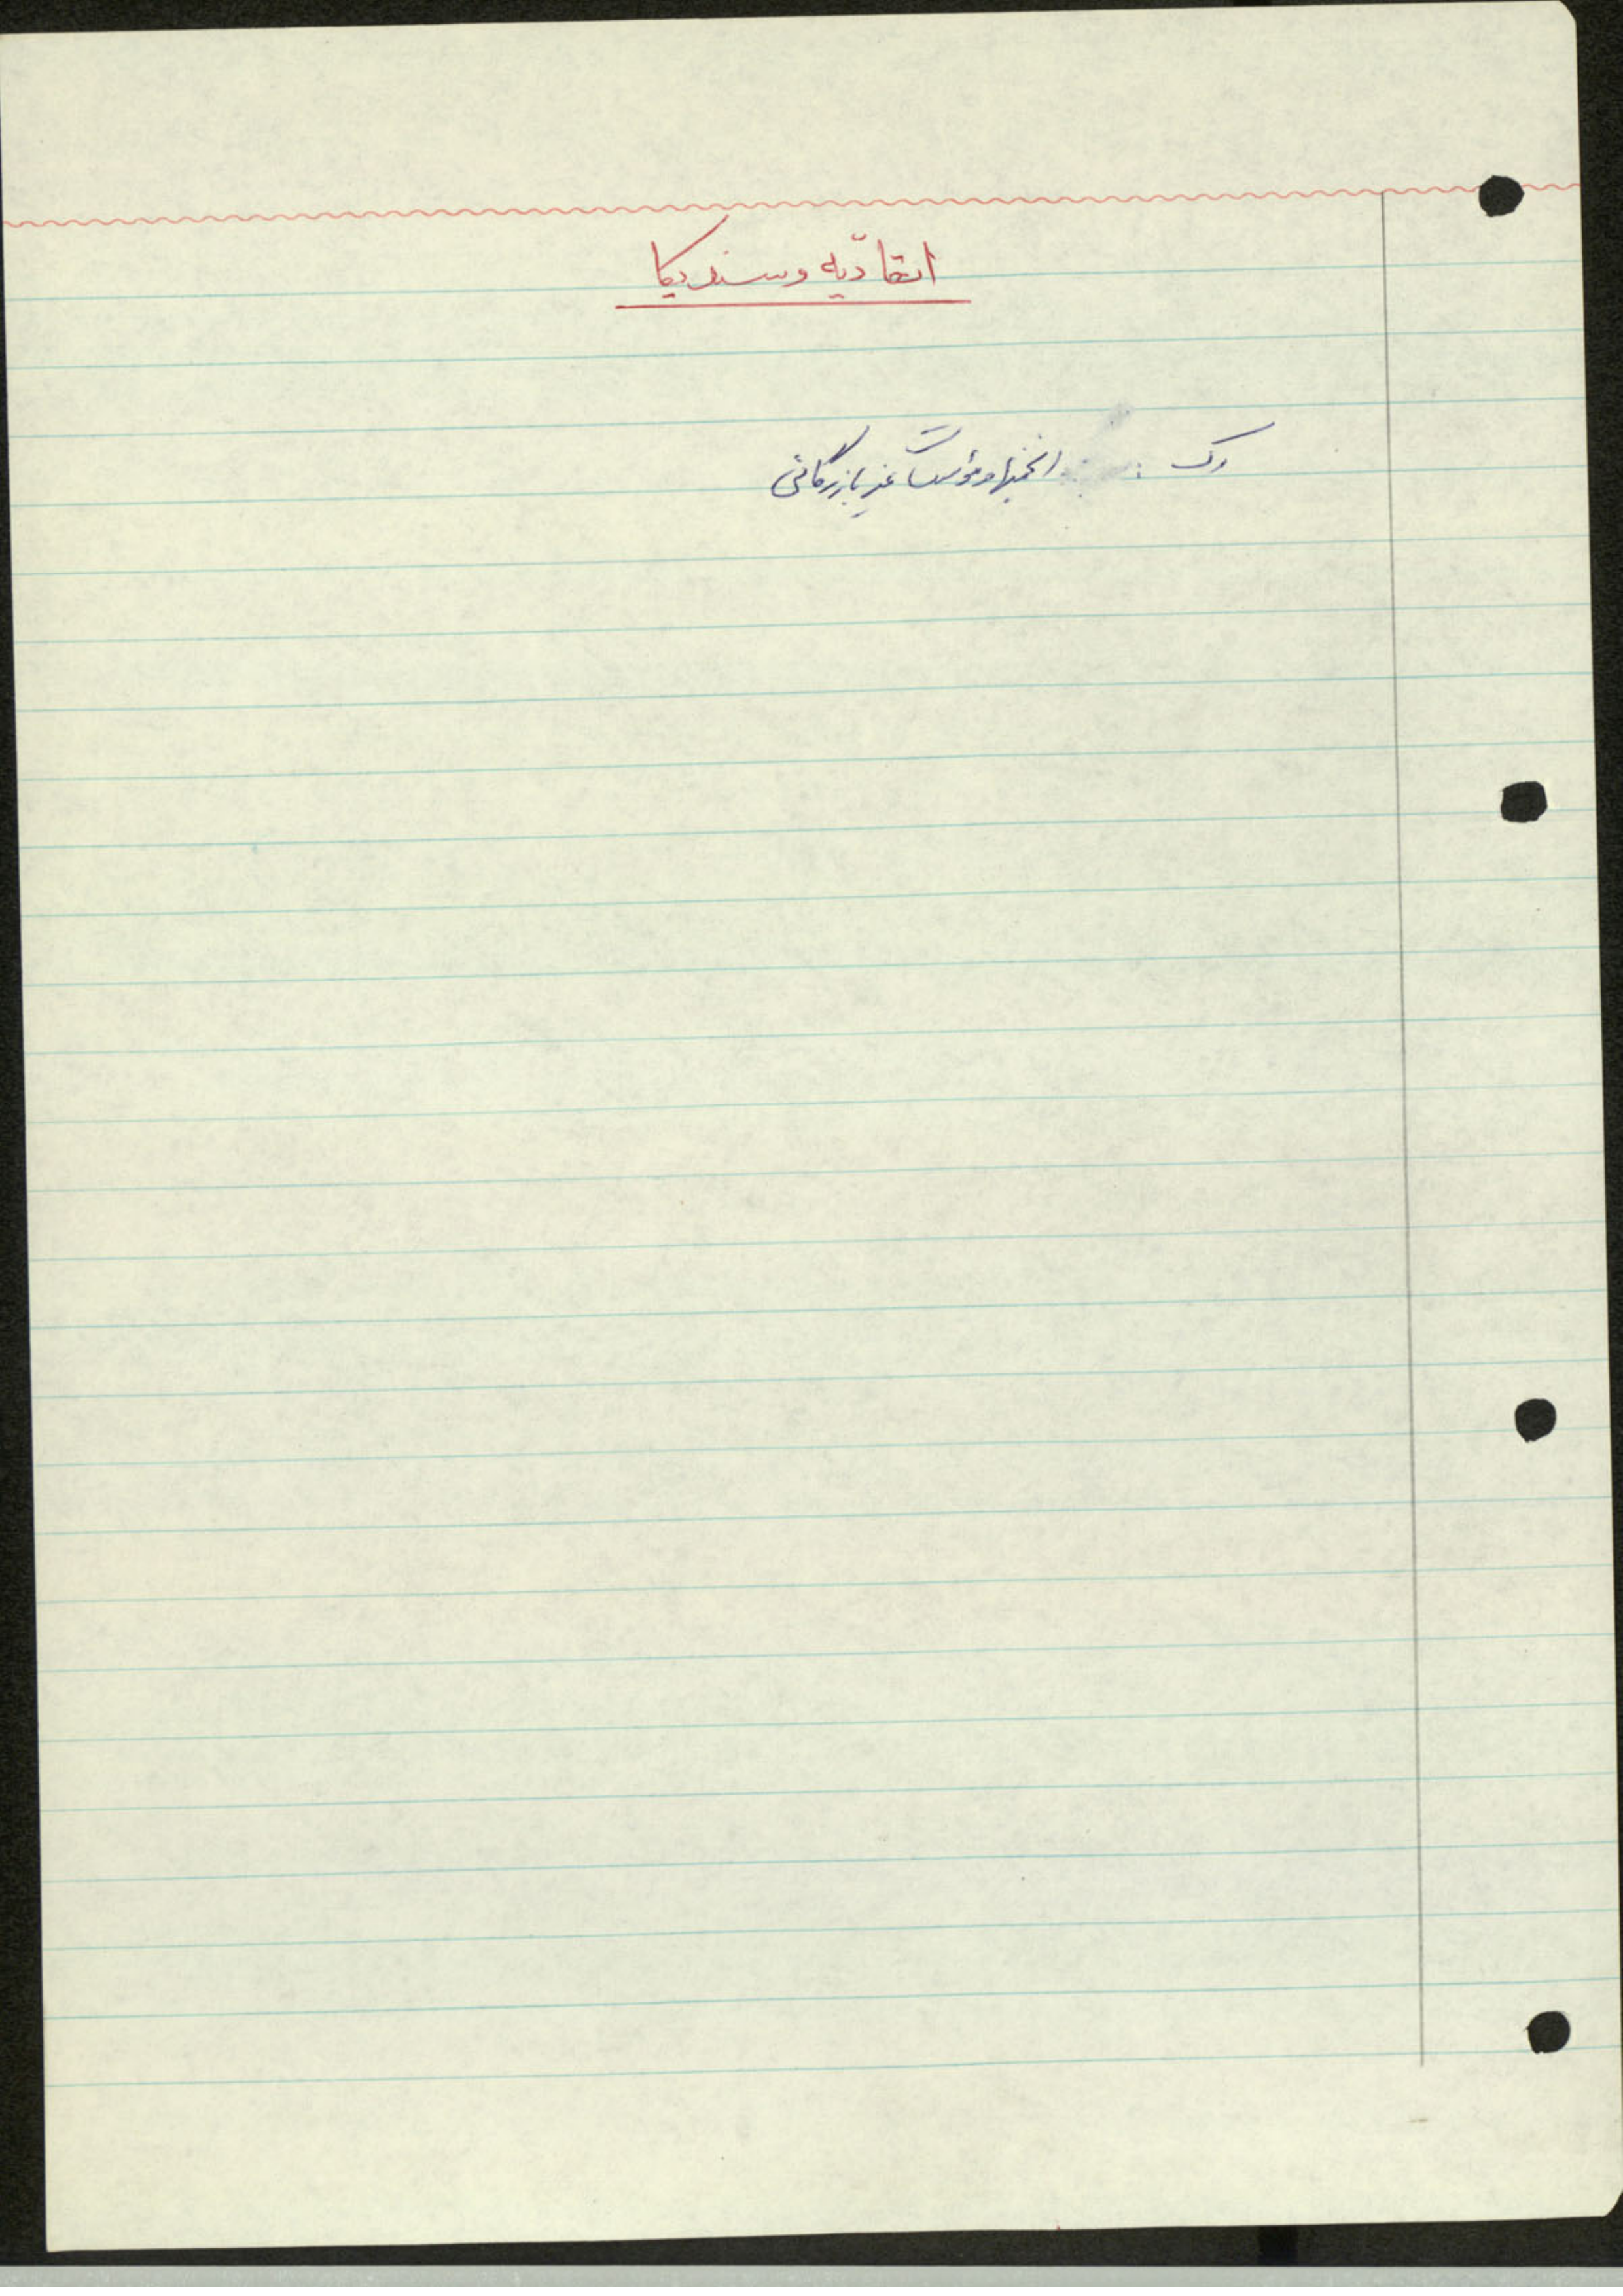 اتحادّیه و سندیکا
رک : انجمنها و مؤسسات غیر بازرگانی